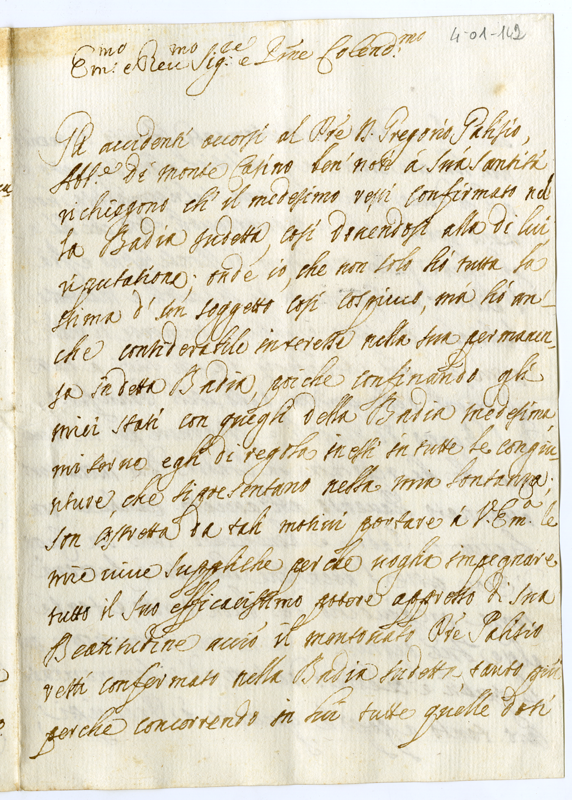 4-01-142
Em.mo e Reu.mo Sig.re e Prne Colend.mo
Gli accidenti occorsi al Pre D. Gregorio Galisio,
Abb.e di Monte Casino ben noti à Sua Santità
richiegono ch' il medesimo resti confirmato nel
la Badia sudetta, così douendosi alla di lui
riputatione; onde io, che non solo hò tutta la
stima d' un soggetto così cospicuo, mà hò an=
che considerabile interesse nella sua permanen=
za in detta Badia, poiche confinando gli
miei stati con quegli della Badia medesima,
mi serue egli di regola in essi in tutte le congiu=
nture, che si presentano nella mia lontananza,
son costretta da tali motiui portare à V.ra Em.a le
mie uiue suppliche perche uoglia impegnare
tutto il suo efficacissimo potere appresso di Sua
Beatitudine acciò il mentouato Pre Galisio
resti confermato nella Badia sudetta tanto più
perche concorrendo in lui tutte quelle doti